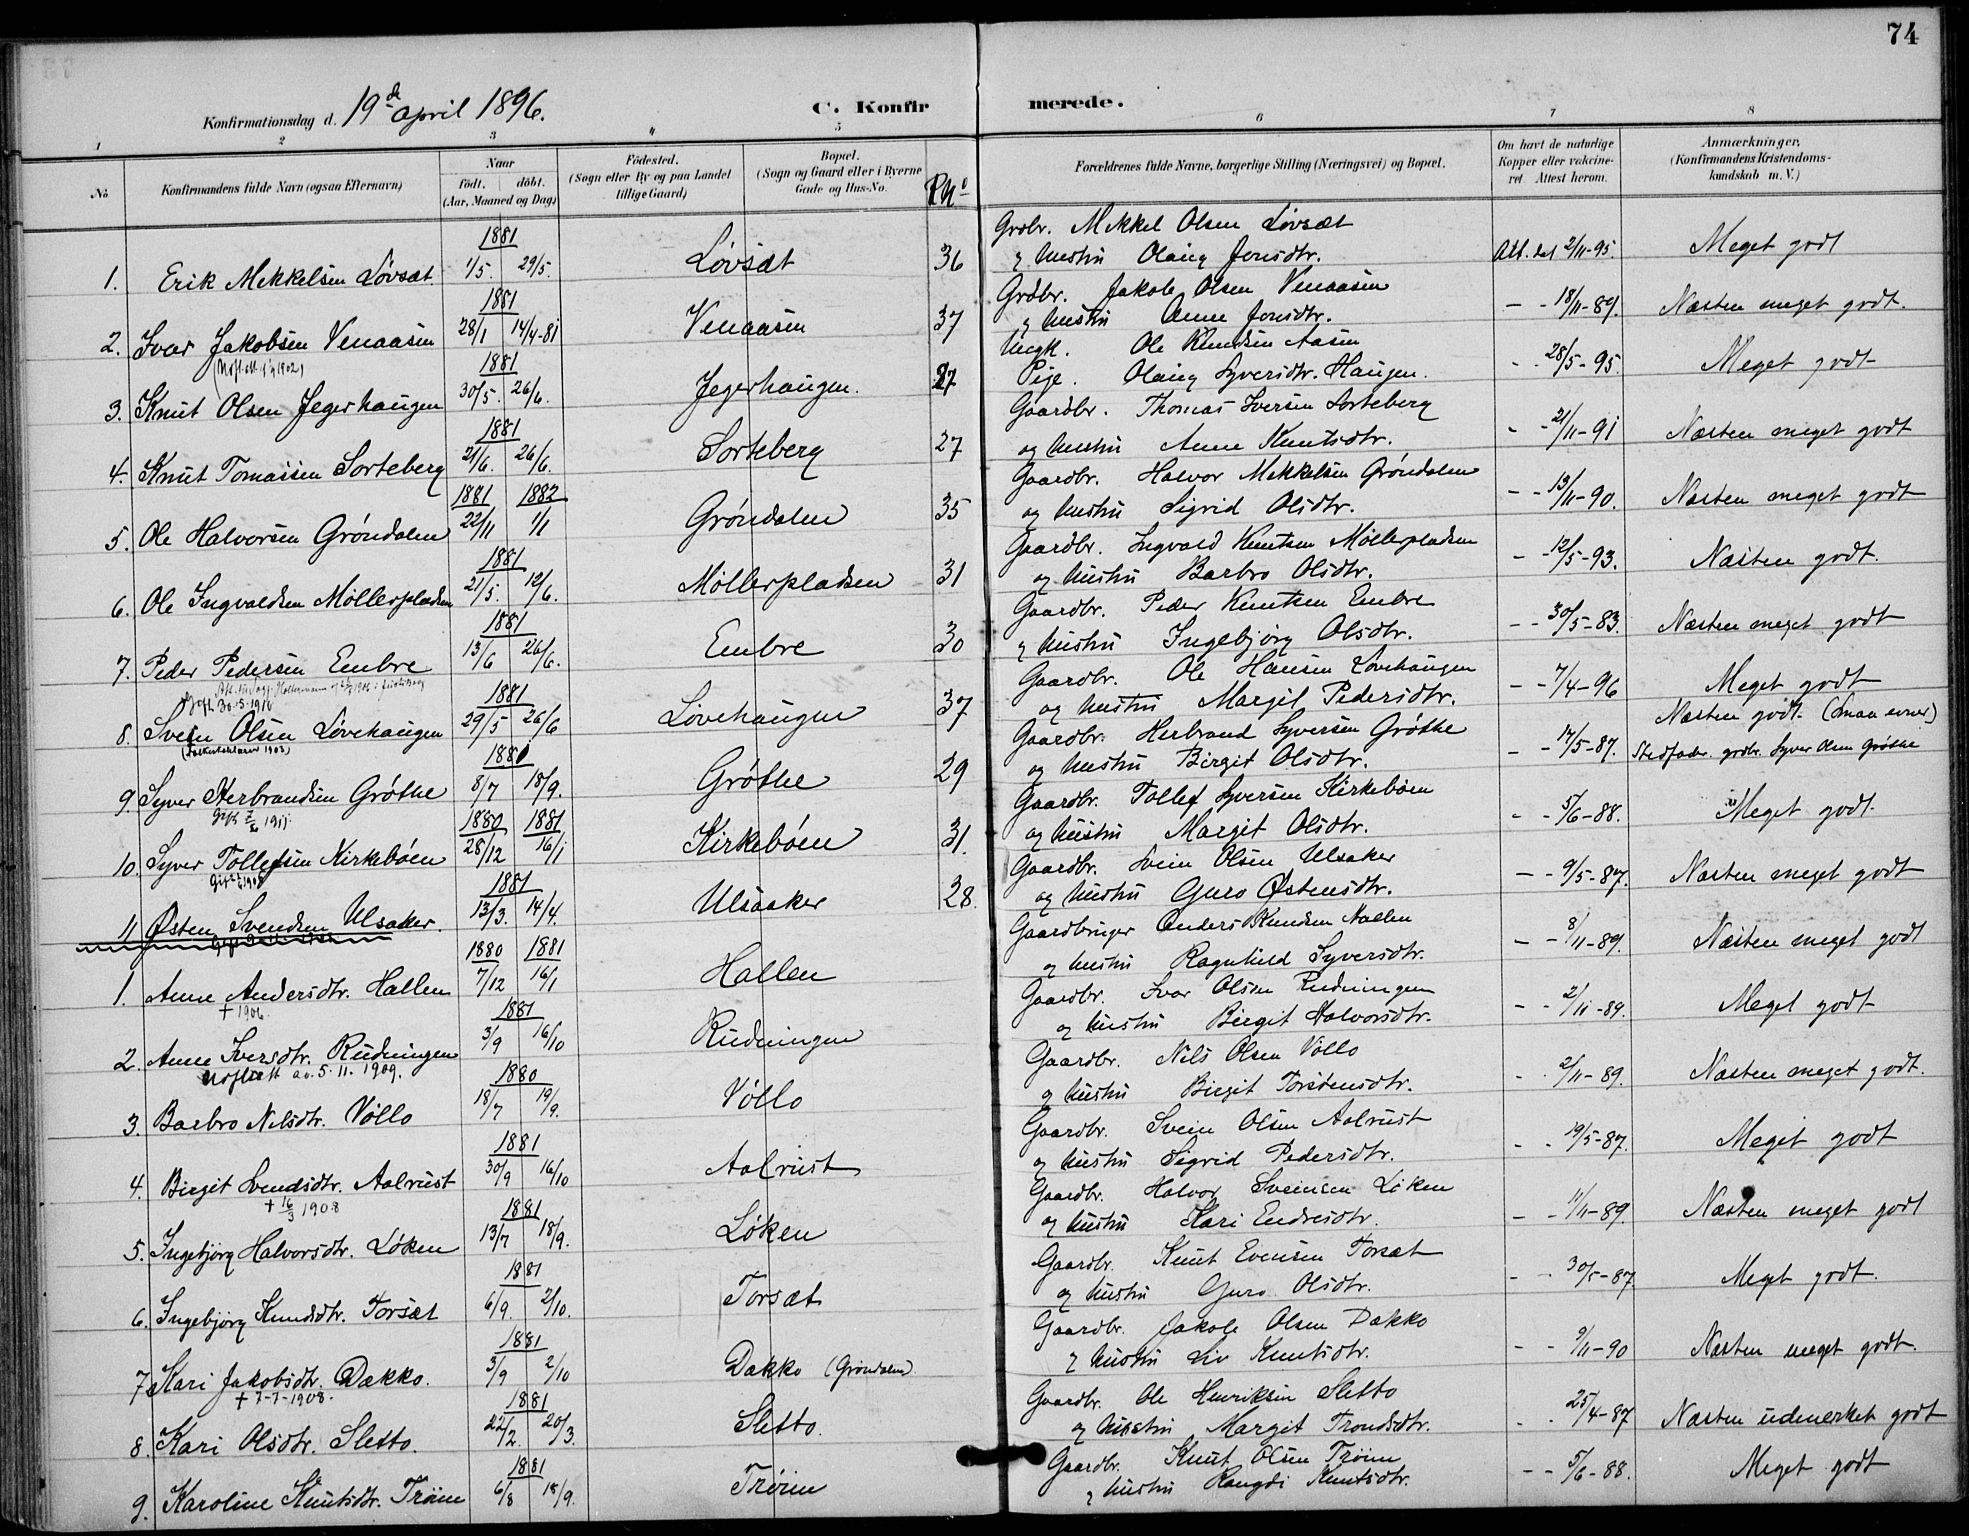 74
Konfirmationsdag d. 19de april 1896.
C. Konfirmerede.
1 2 3 4 5 6 7 8
No. Konfirmandens fulde Navn (ogsaa Efternavn) Naar født. døbt. (Aar, Maaned og Dag) Fødested. (Sogn eller By og paa Landet tillige Gaard) Bopæl. (Sogn og Gaard eller i Byerne Gade og Hus-No. Forældrenes fulde Navne, borgerlige Stilling (Næringsvei) og Bopæl. Om havt de naturlige Kopper eller vakcineret. Attest herom. Anmærkninger. (Konfirmandens Kristendomskundskab m. V.)
1881 Grdbr. Mekkel Olsen Løvsæt
1. Erik Mekkelsen Løvsæt. 1/5. 29/5. Løvsæt 36 og hustru Olaug Jonsdtr. Att. dat 2/11-95. Meget godt
1881 Grdbr. Jakob Olsen Venaasen
2. Ivar Jakobsen Venaasen 28/1 14/4-81 Venaasen 37 og hustru Anne Jonsdtr. - - 18/11-89. Næsten meget godt.
1881 Ungk. Ole Knudsen Aasen
3. Knut Olsen Jegerhaugen 30/5. 26/6. Jegerhaugen. 27 Pige. Olaug Syversdtr. Haugen. - - 28/5-95. Meget godt
1881 Gaardbr. Thomas Iversen Sorteberg
4. Knut Tomassen Sorteberg 21/6. 26/6. Sorteberg 27 og hustru Anne Knutsdtr. - - 21/11-91 Næsten meget godt
1881 1882 Gaardbr. Halvor Mekkelsen Grøndalen
5. Ole Halvorsen Grøndalen 22/11 1/1 Grøndalen 35 og hustru Sigrid Olsdtr. - - 13/11-90. Næsten meget godt
1881 Gaardbr. Ingvald Knutsen Møllerpladsen
6. Ole Ingvaldsen Møllerpladsen 21/5. 12/6. Møllerpladsen 31 og hustru Barbro Olsdtr. - - 12/5-93. Næsten godt.
1881 Gaardbr. Peder Knutsen Embre
7. Peder Pedersen Embre 13/6 26/6. Embre 30 og hustru Ingebjørg Olsdtr. - - 30/5-83. Næsten meget godt
Gift 30.5.1910
1881 Gaardbr. Ole Hansen Løvehaugen
8. Svein Olsen Løvehaugen 29/5 26/6 Løvehaugen 37 og hustru Margit Pedersdtr. - - 7/4-96 Meget godt
1880 Gaardbr. Herbrand Syversen Grøthe Næsten godt. (smaa evner)
9. Syver Herbrandsen Grøthe 8/7 18/9. Grøthe 29 og hustru Birgit Olsdtr. - - 17/5-87. Stedfader. grdbr. Syver Olsen Grøthe
1880 1881 Gaardbr. Tollef Syversen Kirkebøen
10. Syver Tollefsen Kirkebøen 28/12 16/1 Kirkebøen 31. og hustru Margit Olsdtr. - - 5/6-88. Meget godt
1881 Gaardbr. Svein Olsen Ulsaker
11 Østen Svendsen Ulsaker. 13/3. 14/4. Ulsaaker 28. og hustru Guro Østensdtr. - - 9/5-87. Næsten meget godt
1880 1881 Gaardbruger Anders Knudsen Hallen
1. Anne Andersdtr. Hallen 7/12 16/1 Hallen og hustru Ragnhild Syversdtr. - - 8/11-89. Næsten meget godt
† 1906.
1881 Gaardbr. Ivar Olsen Rudningen
2. Anne Iversdtr. Rudningen 3/9 16/10 Rudningen og hustru Birgit Halvorsdtr. - - 2/11-89. Meget godt
Uofl. att. av. 5.11.1909.
1880 Gaardbr. Nils Olsen Vøllo
3. Barbro Nilsdtr. Vøllo 18/7 19/9. Vøllo og hustru Birgit Torstensdtr. - - 2/11-89. Næsten meget godt.
1881 Gaardbr. Svein Olsen Aalrust
4. Birgit Svendsdtr. Aalrust 30/9 16/10 Aalrust og hustru Sigrid Pedersdtr. - - 19/5-87. Meget godt
† 16/3 1908
1881 Gaardbr. Halvor Sveinsen Løken
5. Ingebjørg Halvorsdtr. Løken 13/7 18/9. Løken og hustru Kari Endresdtr. - - 11/11-89. Næsten meget godt
1881 Gaardbr. Knut Evensen Torsæt
6. Ingebjørg Knudsdtr. Torsæt 6/9. 2/10. Torsæt og hustru Guro Olsdtr. - - 30/5-87 Meget godt.
1881 Gaardbr. Jakob Olsen Dækko
7. Kari Jakobsdtr. Dækko. 3/9 2/10 Dækko (Grøndalen) og hustru Liv Knutsdtr. - - 9/11-90 Næsten meget godt.
† 7-7-1908.
1881 Gaardbr. Ole Henriksen Sletto
8. Kari Olsdtr. Sletto. 22/2. 20/3. Sletto. og hustru Margit Trondsdtr. - - 25/4-87 Næsten udmerket godt
1881 Gaardbr. Knut Olsen Trøim
9. Karoline Knutsdtr. Trøim 6/8 18/9. Trøim og hustru Rangdi Knutsdtr. - - 5/6-88. Meget godt